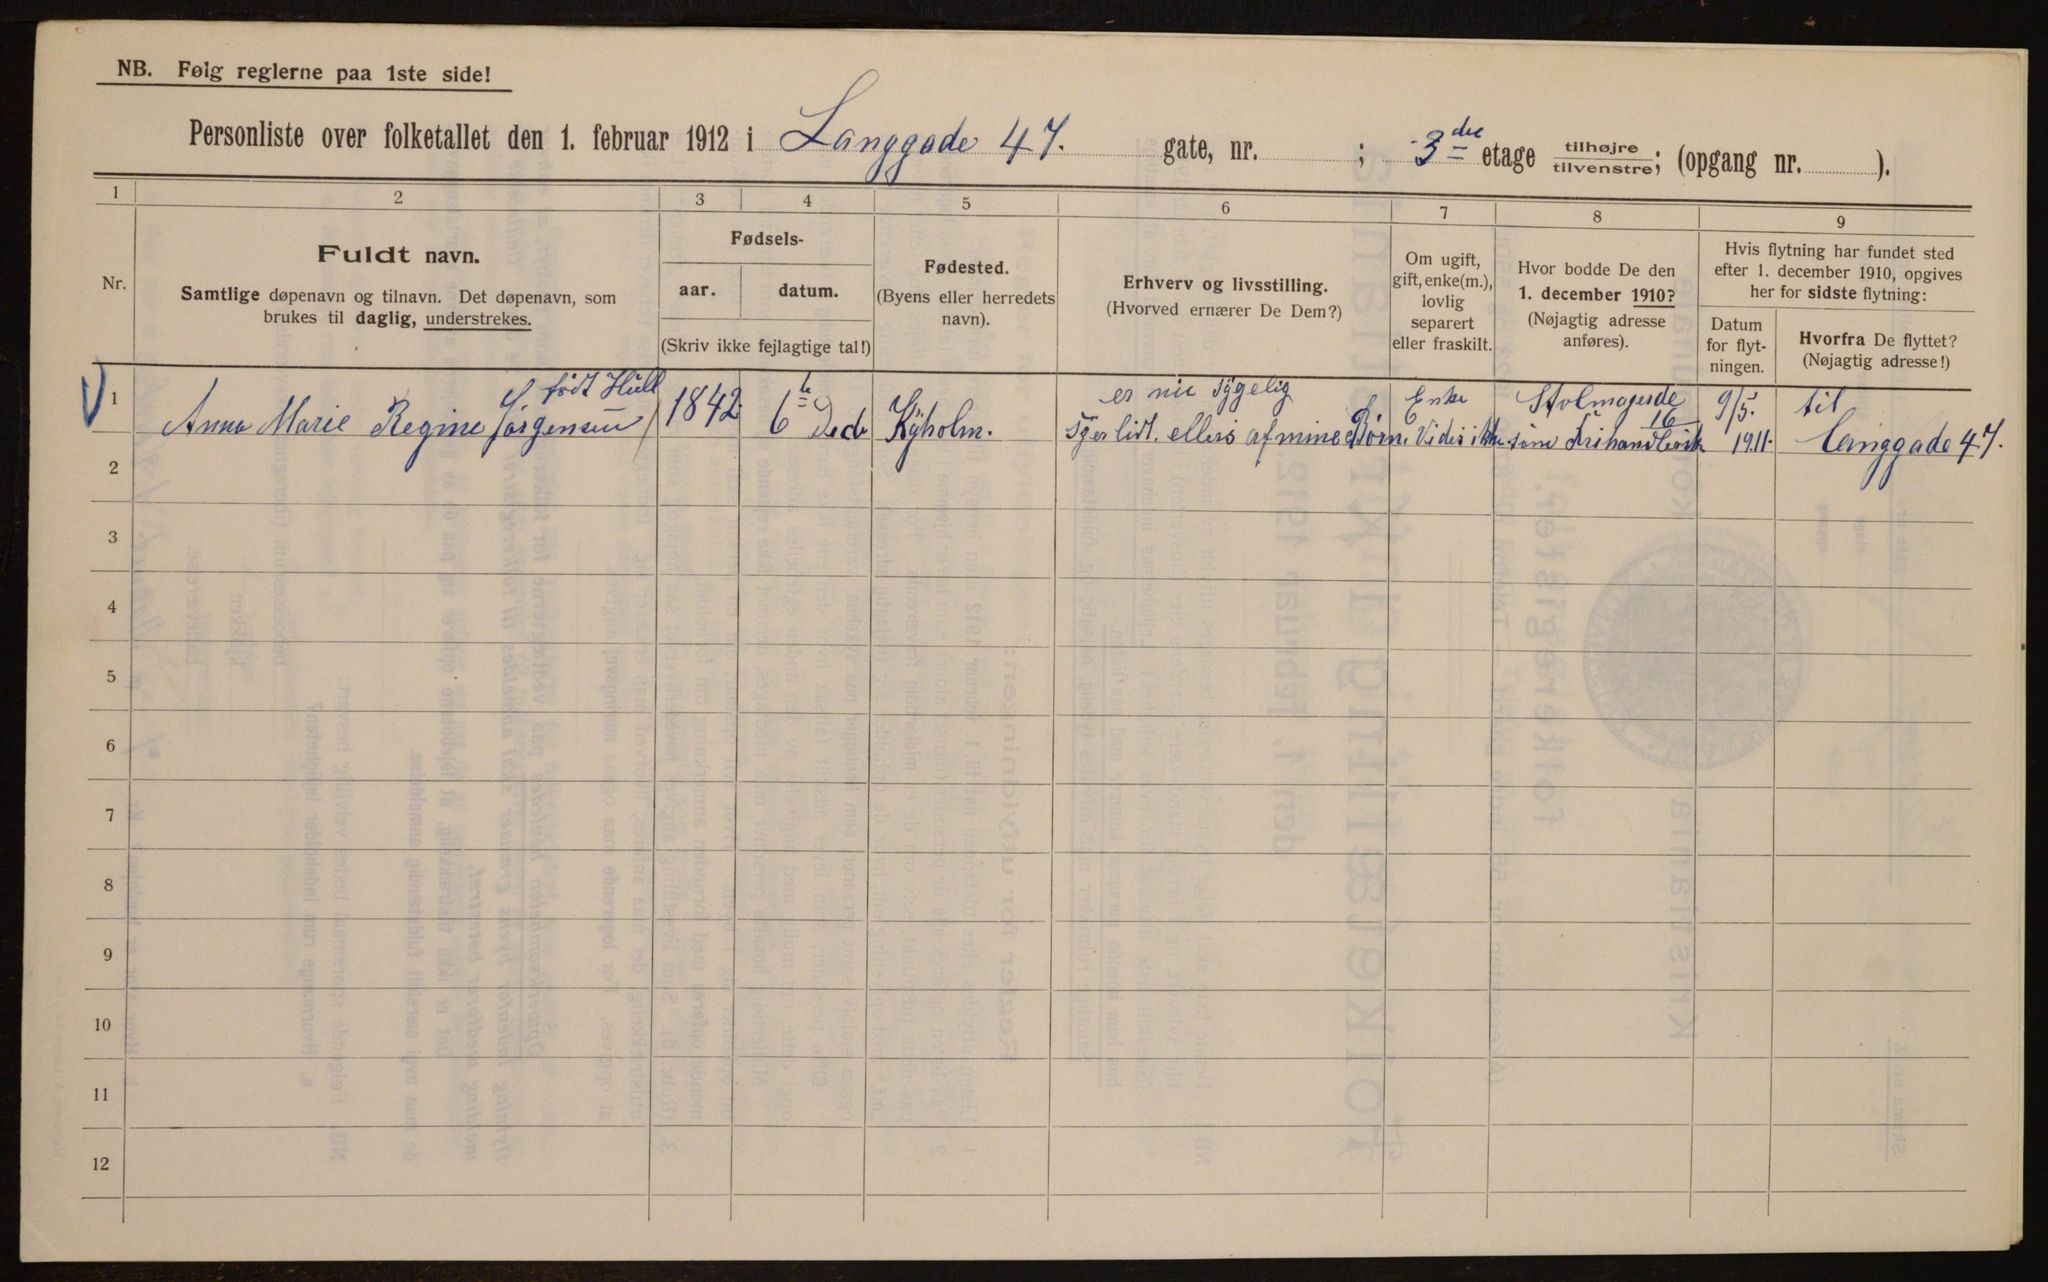 NB. Følg reglerne paa 1ste side!
Personliste over folketallet den 1. februar 1912 i Langgade 47. gate, nr. ; 3die etage tilhøjre/tilvenstre; (opgang nr. ).
1 2 3 4 5 6 7 8 9
Nr.
Fuldt navn.
Samtlige døpenavn og tilnavn. Det døpenavn, som
brukes til daglig, understrekes.
Fødsels-
aar.
datum.
(Skriv ikke fejlagtige tal!)
Fødested.
(Byens eller herredets
navn).
Erhverv og livsstilling.
(Hvorved ernærer De Dem?)
Om ugift,
gift, enke(m.),
lovlig
separert
eller fraskilt.
Hvor bodde De den
1. december 1910?
(Nøjagtig adresse
anføres).
Hvis flytning har fundet sted
efter 1. december 1910, opgives
her for sidste flytning:
Datum
for flyt-
ningen.
Hvorfra De flyttet?
(Nøjagtig adresse!)
1
født Hull
Anna Marie Regine Jørgensen
1842
6te Decb
Kÿholm.
er nu sygelig
Syer lidt. ellers af mine Børn.
Enke
Stolmagerde
16
9/5.
1911.
til
Langgade 47.
2
3
4
5
6
7
8
9
10
11
12